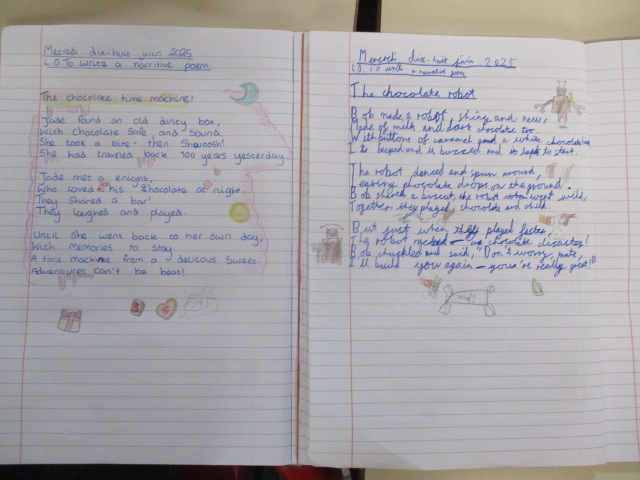 Mecredi dix-huit juin 2025
L.O To write a narritive poem.
The chocolate time machine!
Jade found an old duscy box,
With chocolate Safe, and Sound.
She took a bite - then Shwoosh!
She had traveled back 100 years yesterday.
Jade met a knight,
Who loved his chocolate at night,
They Shared a bar!
They laughed and played.
Until She went back to her own day,
With Memories to Stay
A time machine from a delicous Sweet
Adventures can't be beat!
Mercredi dix-huit juin 2025
L.O.
The chocolate robot
Bob made a robot, shiny and new,
Made of milk and dark chocolate too.
With buttons of caramel and a white chocolate
It beeped and it buzzed and it to start.
The robot danced and spun around,
Leaving chocolate drops on the ground.
Bob shared a biscuit, the robot went wild,
Together they played, chocolate and child.
But just when they played faster,
The robot melted - a chocolate disaster!
Bob chuckled and said, "Don't worry, mate,
I'll build you again - you're really great!"